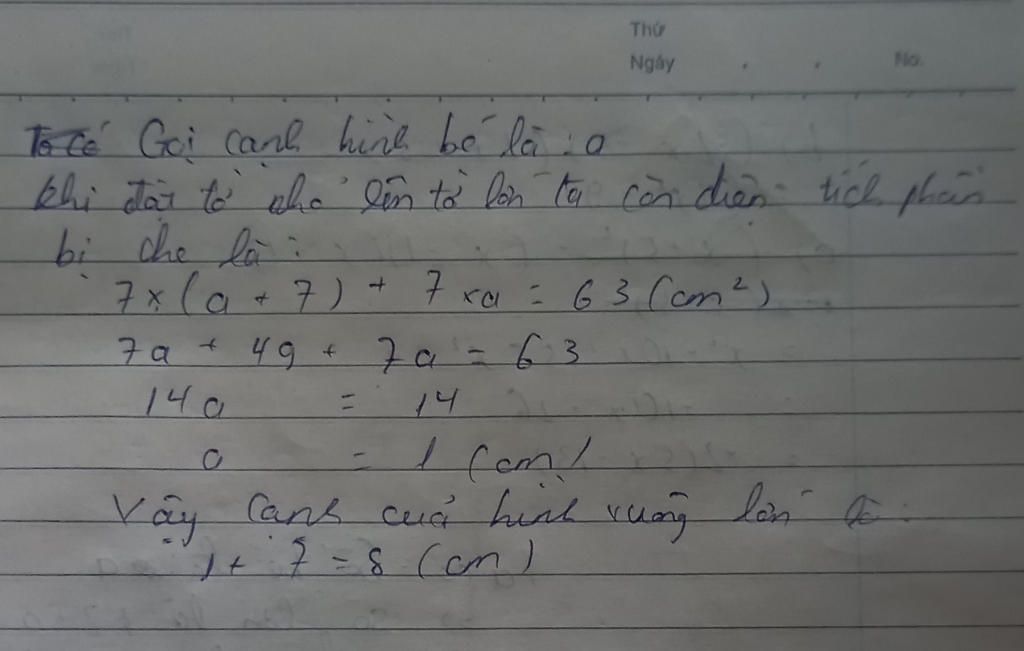 Thứ
Ngày . . No.
Gọi cạnh hình bé là : a
Khi đặt tờ nhỏ lên tờ lớn ta còn diện tích phần
bị che là :
7 × (a + 7) + 7 × a = 63 (cm²)
7a + 49 + 7a = 63
14a = 14
a = 1 (cm)
Vậy cạnh của hình vuông lớn là :
1 + 7 = 8 (cm)